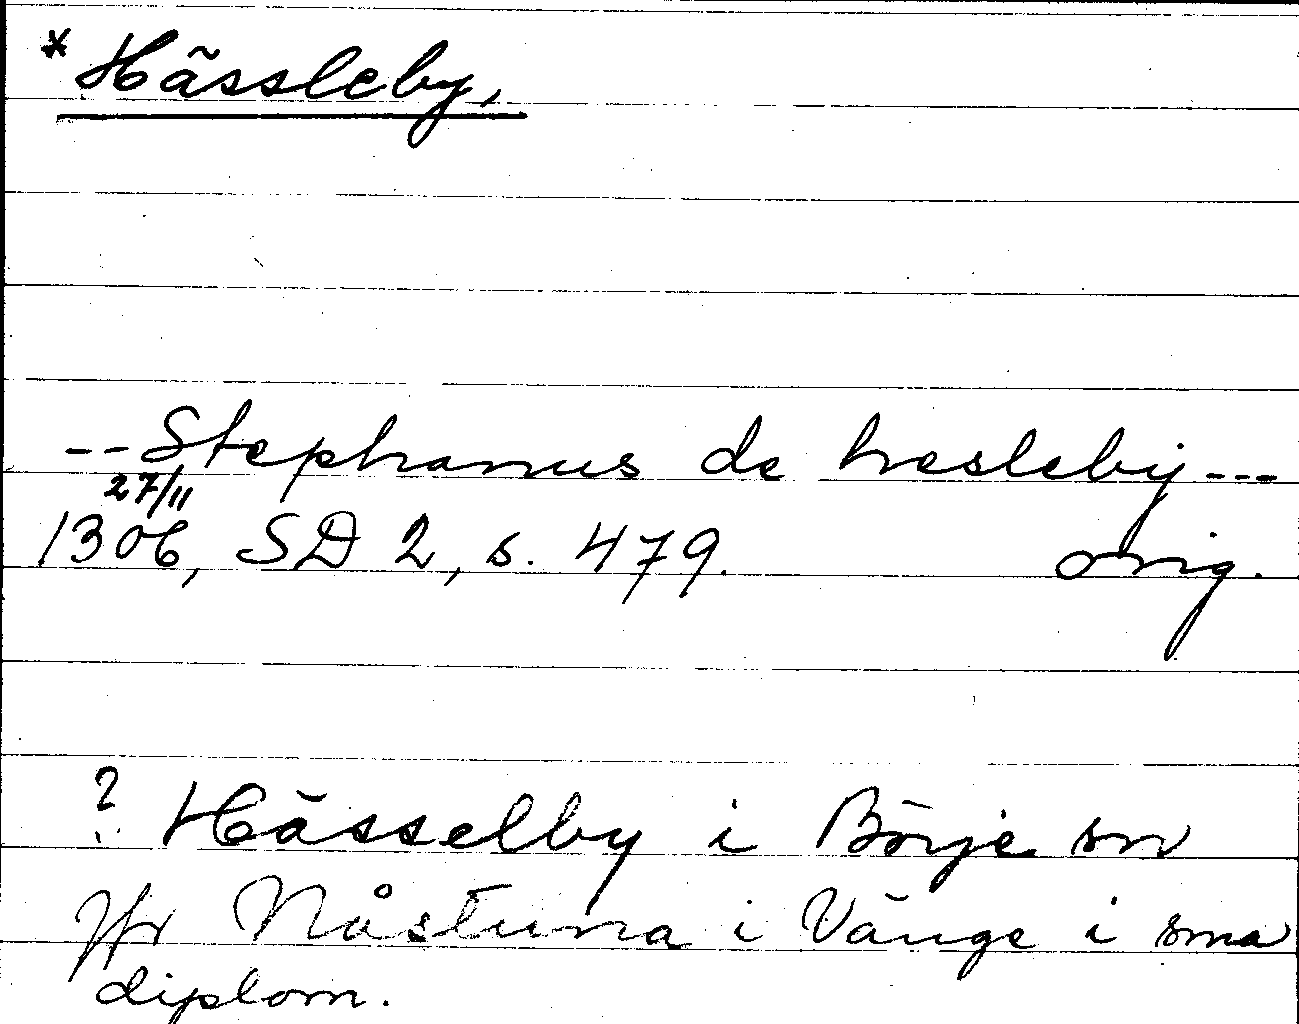 * Hässleby,
-- Stephanus de hesleby ---
27/11
1306, SD 2, s. 479. orig.
? Hässelby i Börje sn
Jfr Nåstuna i Vänge i sma
diplom.